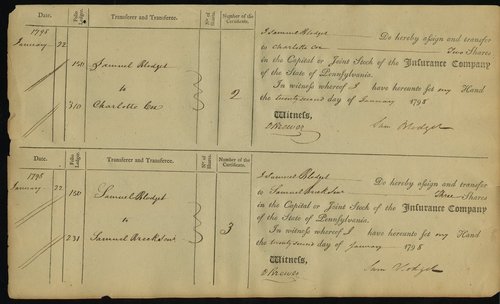 Date. Folio Ledger. Transferer and Transferee. No. of Shares. Number of the Certificate.
1795
January 22
150 Samuel Blodget
to
310 Charlotte Coe
2
I Samuel Blodget Do hereby assign and transfer
to Charlotte Coe Two Shares
in the Capital or Joint Stock of the Insurance Company
of the State of Pennsylvania.
In witness whereof I have hereunto set my Hand
the twenty second day of January 1795
Witness,
Sam Blodget
Date. Folio Ledger. Transferer and Transferee. No. of Shares. Number of the Certificate.
1795
January 22
150 Samuel Blodget
to
231 Samuel
3
I Samuel Blodget Do hereby assign and transfer
to Samuel Three Shares
in the Capital or Joint Stock of the Insurance Company
of the State of Pennsylvania.
In witness whereof I have hereunto set my Hand
the twenty second day of January 1795
Witness,
Sam Blodget